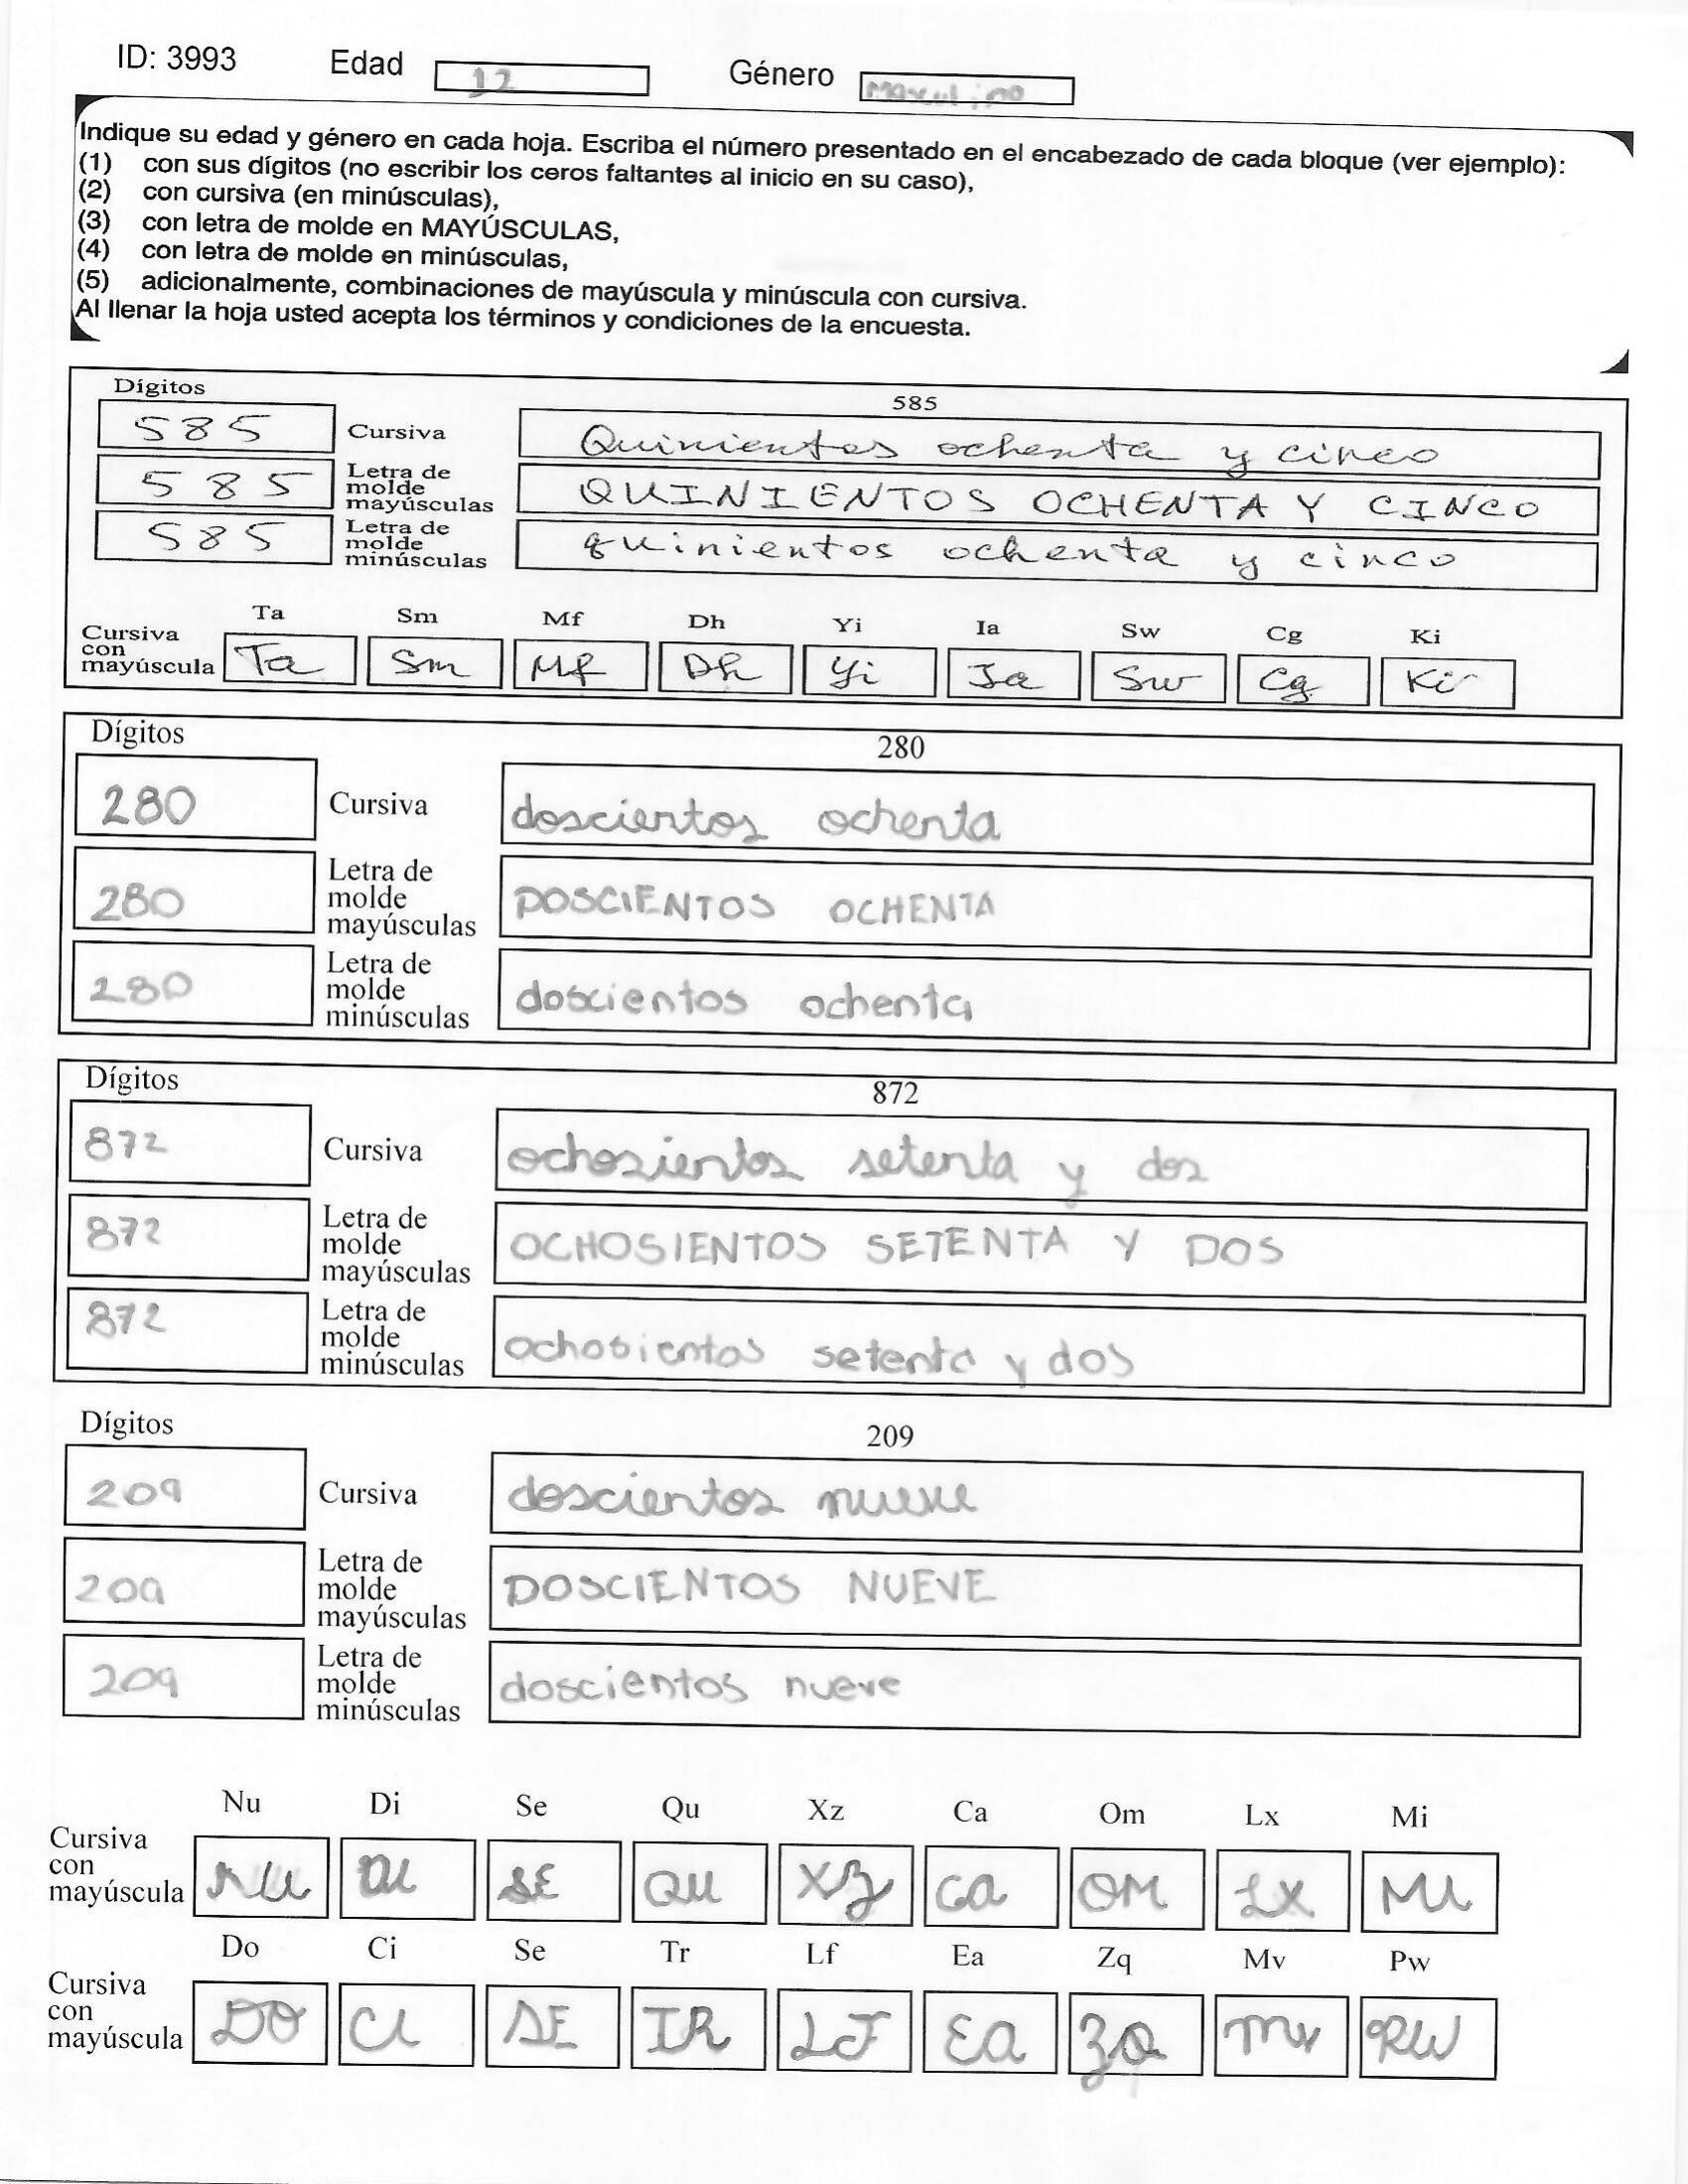 ID: 3993 Edad 12 Género Masculino
Indique su edad y género en cada hoja. Escriba el número presentado en el encabezado de cada bloque (ver ejemplo):
(1) con sus dígitos (no escribir los ceros faltantes al inicio en su caso),
(2) con cursiva (en minúsculas),
(3) con letra de molde en MAYÚSCULAS,
(4) con letra de molde en minúsculas,
(5) adicionalmente, combinaciones de mayúscula y minúscula con cursiva.
Al llenar la hoja usted acepta los términos y condiciones de la encuesta.
Dígitos 585
585 Cursiva Quinientos ochenta y cinco
585 Letra de molde mayúsculas QUINIENTOS OCHENTA Y CINCO
585 Letra de molde minúsculas quinientos ochenta y cinco
Ta Sm Mf Dh Yi Ia Sw Cg Ki
Cursiva con mayúscula Ta Sm Mf Dh Yi Ia Sw Cg Ki
Dígitos 280
280 Cursiva doscientos ochenta
280 Letra de molde mayúsculas DOSCIENTOS OCHENTA
280 Letra de molde minúsculas doscientos ochenta
Dígitos 872
872 Cursiva ochosientos setenta y dos
872 Letra de molde mayúsculas OCHOSIENTOS SETENTA Y DOS
872 Letra de molde minúsculas ochosientos setenta y dos
Dígitos 209
209 Cursiva doscientos nueve
209 Letra de molde mayúsculas DOSCIENTOS NUEVE
209 Letra de molde minúsculas doscientos nueve
Nu Di Se Qu Xz Ca Om Lx Mi
Cursiva con mayúscula NU DI SE QU XZ Ca OM LX MI
Do Ci Se Tr Lf Ea Zq Mv Pw
Cursiva con mayúscula DO CI SE TR LF Ea ZQ MV PW